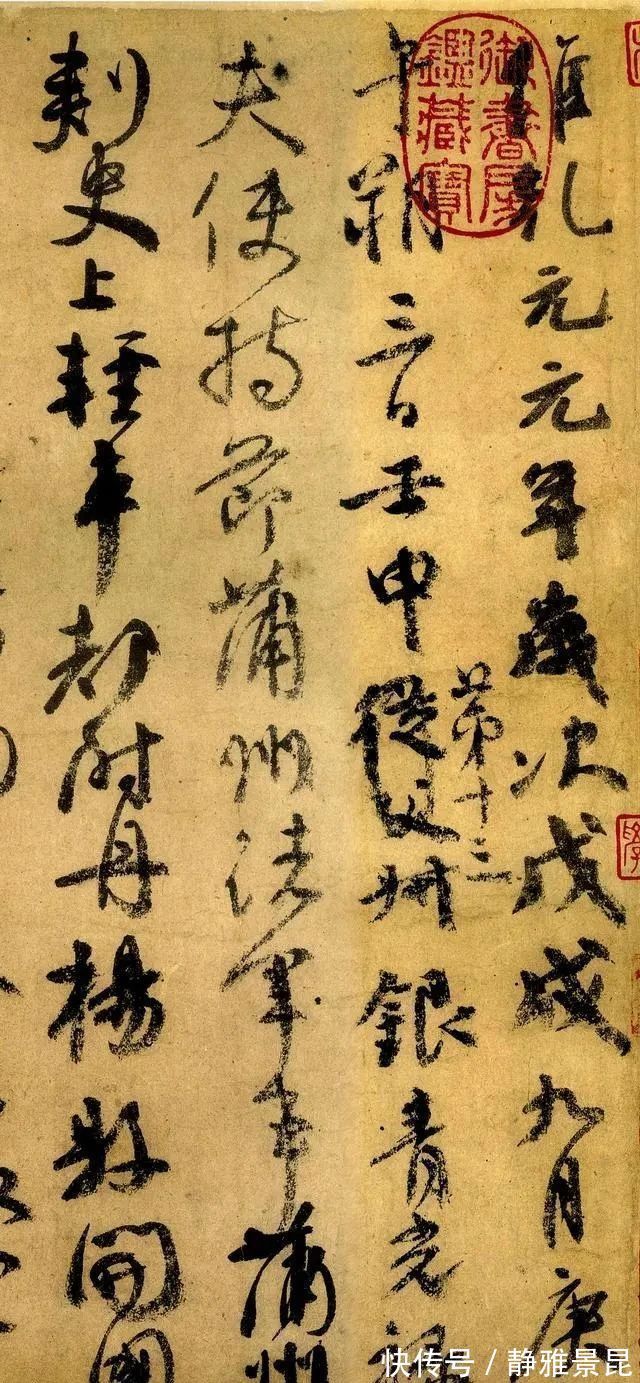 維乾元元年歲次戊戌九月庚
午朔三日壬申從父叔銀青光祿
第十三
夫使持節蒲州諸軍事蒲州
刺史上輕車都尉丹楊縣開國
御書房鑑藏寶
快传号 / 静雅景昆